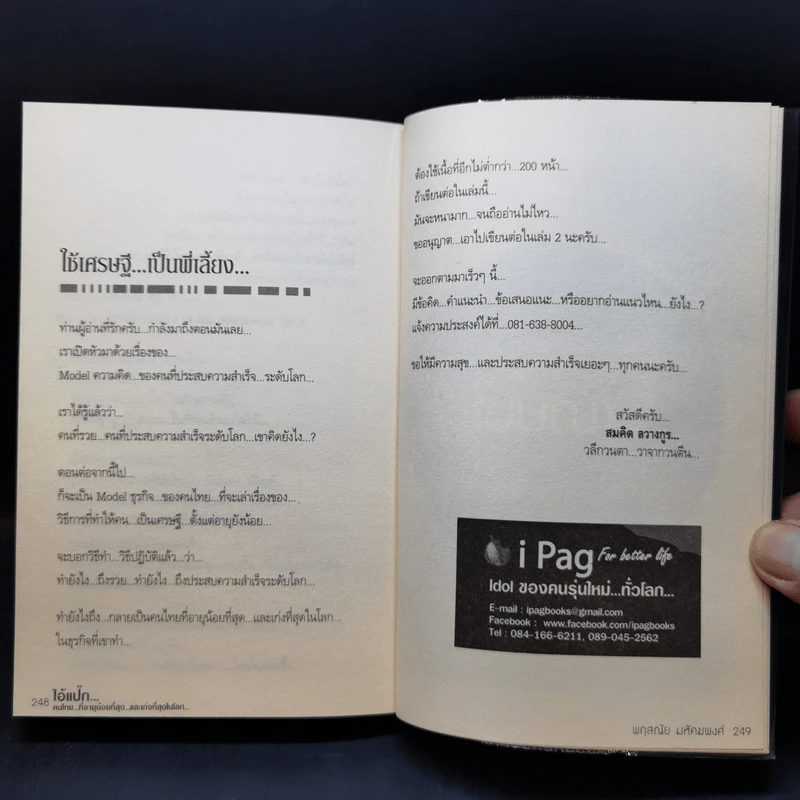 ใช้เศรษฐี...เป็นพี่เลี้ยง...
ท่านผู้อ่านที่รักครับ...กำลังมาถึงตอนมันเลย...
เราเปิดหัวมาด้วยเรื่องของ...
Model ความคิด...ของคนที่ประสบความสำเร็จ...ระดับโลก...
เราได้รู้แล้วว่า...
คนที่รวย...คนที่ประสบความสำเร็จระดับโลก...เขาคิดยังไง...?
ตอนต่อจากนี้ไป...
ก็จะเป็น Model ธุรกิจ...ของคนไทย...ที่จะเล่าเรื่องของ...
วิธีการที่ทำให้คน...เป็นเศรษฐี...ตั้งแต่อายุยังน้อย...
จะบอกวิธีทำ...วิธีปฏิบัติแล้ว...ว่า...
ทำยังไง...ถึงรวย...ทำยังไง...ถึงประสบความสำเร็จระดับโลก...
ทำยังไงถึง...กลายเป็นคนไทยที่อายุน้อยที่สุด...และเก่งที่สุดในโลก...
ในธุรกิจที่เขาทำ...
248 ไอ้แป๊ก...
คนไทย...ที่อายุน้อยที่สุด...และเก่งที่สุดในโลก...
ต้องใช้เนื้อที่อีกไม่ต่ำกว่า...200 หน้า...
ถ้าเขียนต่อในเล่มนี้...
มันจะหนามาก...จนถืออ่านไม่ไหว...
ขออนุญาต...เอาไปเขียนต่อในเล่ม 2 นะครับ...
จะออกตามมาเร็วๆ นี้...
มีข้อคิด...คำแนะนำ...ข้อเสนอแนะ...หรืออยากอ่านแนวไหน...ยังไง...?
แจ้งความประสงค์ได้ที่...081-638-8004...
ขอให้มีความสุข...และประสบความสำเร็จเยอะๆ...ทุกคนนะครับ...
สวัสดีครับ...
สมคิด ลวางกูร...
วลีกวนตา...วาจากวนตีน...
i Pag For better life
Idol ของคนรุ่นใหม่...ทั่วโลก...
E-mail : ipagbooks@gmail.com
Facebook : www.facebook.com/ipagbooks
Tel : 084-166-6211, 089-045-2562
พฤสณัย มหัคฆพงศ์ 249